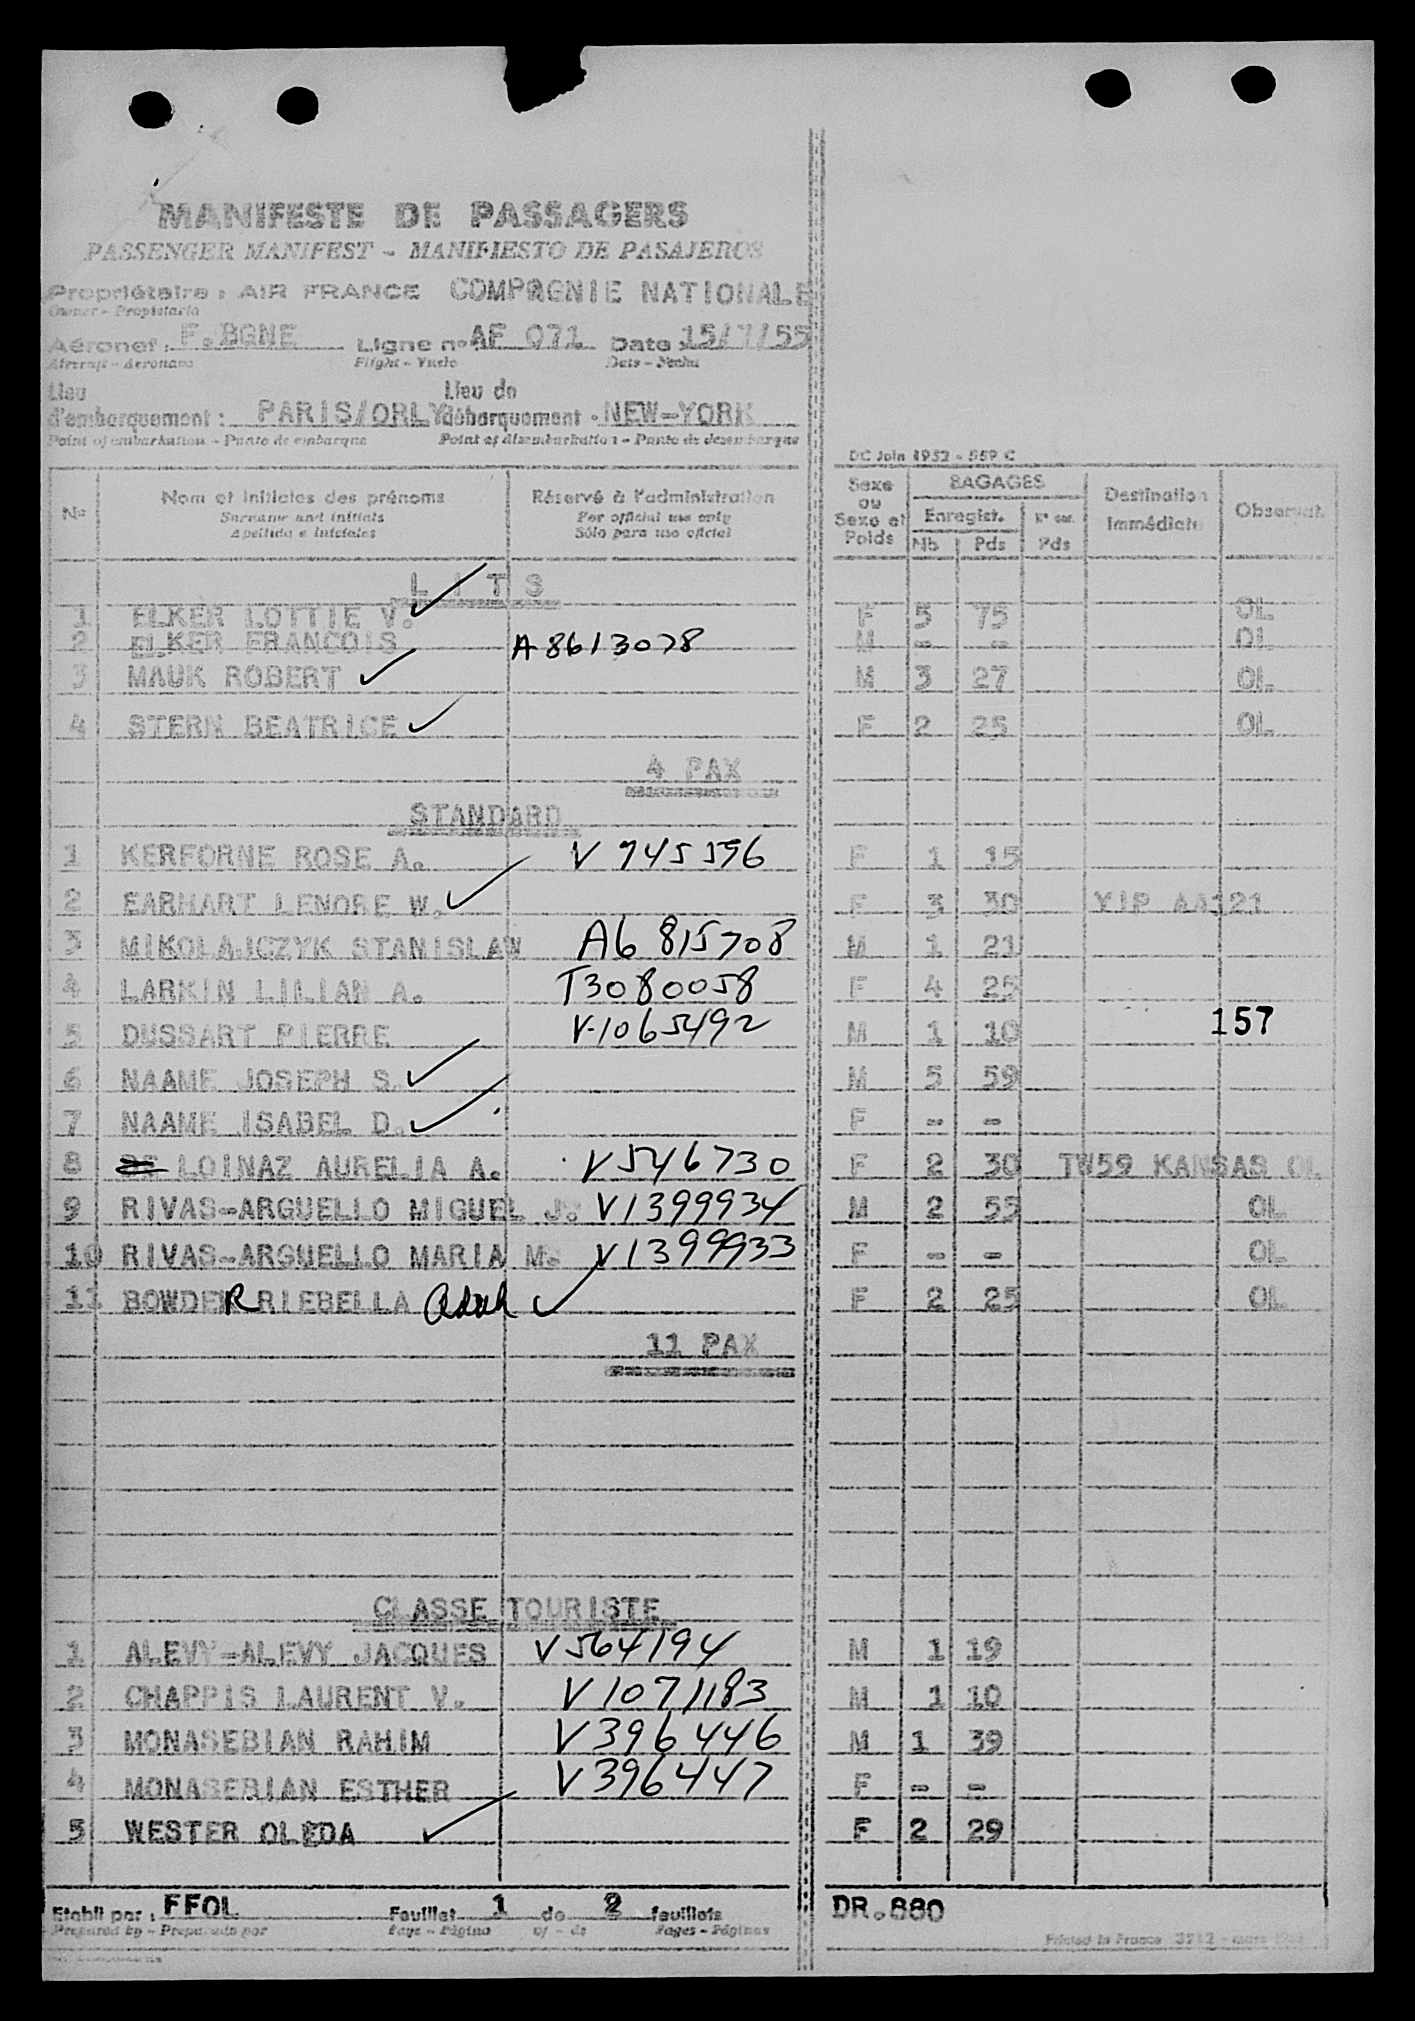 MANIFESTE DE PASSAGERS
PASSENGER MANIFEST - MANIFIESTO DE PASAJEROS
Propriétaire : AIR FRANCE COMPAGNIE NATIONALE
Owner - Propietario
Aéronef : F.BGNE Ligne n° AF 071 Date 15/7/55
Aircraft - Aeronave Flight - Vuelo Date - Fecha
Lieu Lieu de
d'embarquement : PARIS/ORLY débarquement - NEW-YORK
Point of embarkation - Punto de embarque Point of disembarkation - Punto de desembarque
DC Juin 1952 - 559 C
N° Nom et initiales des prénoms Réservé à l'administration Sexe ou Sexe et Poids BAGAGES Destination Immédiate Observat.
Surname and initials For official use only Enregist.
Apellido e iniciales Sólo para uso oficial Nb Pds Pds
L I T S
1 ELKER LOTTIE V. F 5 75 OL
2 ELKER FRANCOIS A8613078 M - - OL
3 MAUK ROBERT M 3 27 OL
4 STERN BEATRICE F 2 25 OL
4 PAX
STANDARD
1 KERFORNE ROSE A. V 745596 F 1 15
2 EARHART LENORE W. F 3 30 YIP AA121
3 MIKOLAJCZYK STANISLAW A6 815708 M 1 21
4 LARKIN LILIAN A. T3080058 F 4 25
5 DUSSART PIERRE V-1065492 M 1 10 157
6 NAAME JOSEPH S. M 5 59
7 NAAME ISABEL D. F - -
8 DE LOINAZ AURELIA A. V546730 F 2 30 TW59 KANSAS OL
9 RIVAS-ARGUELLO MIGUEL J. V1399934 M 2 55 OL
10 RIVAS-ARGUELLO MARIA M. V1399933 F - - OL
11 BOWDER RIEBELLA Adah F 2 25 OL
11 PAX
CLASSE TOURISTE
1 ALEVY-ALEVY JACQUES V564194 M 1 19
2 CHAPPIS LAURENT V. V1071183 M 1 10
3 MONASEBIAN RAHIM V396446 M 1 39
4 MONASEBIAN ESTHER V396447 F - -
5 WESTER OLEDA F 2 29
Etabli par : FFOL Feuillet 1 de 2 feuillets DR.880
Prepared by - Preparado por Page - Página of - de Pages - Páginas
Printed in France